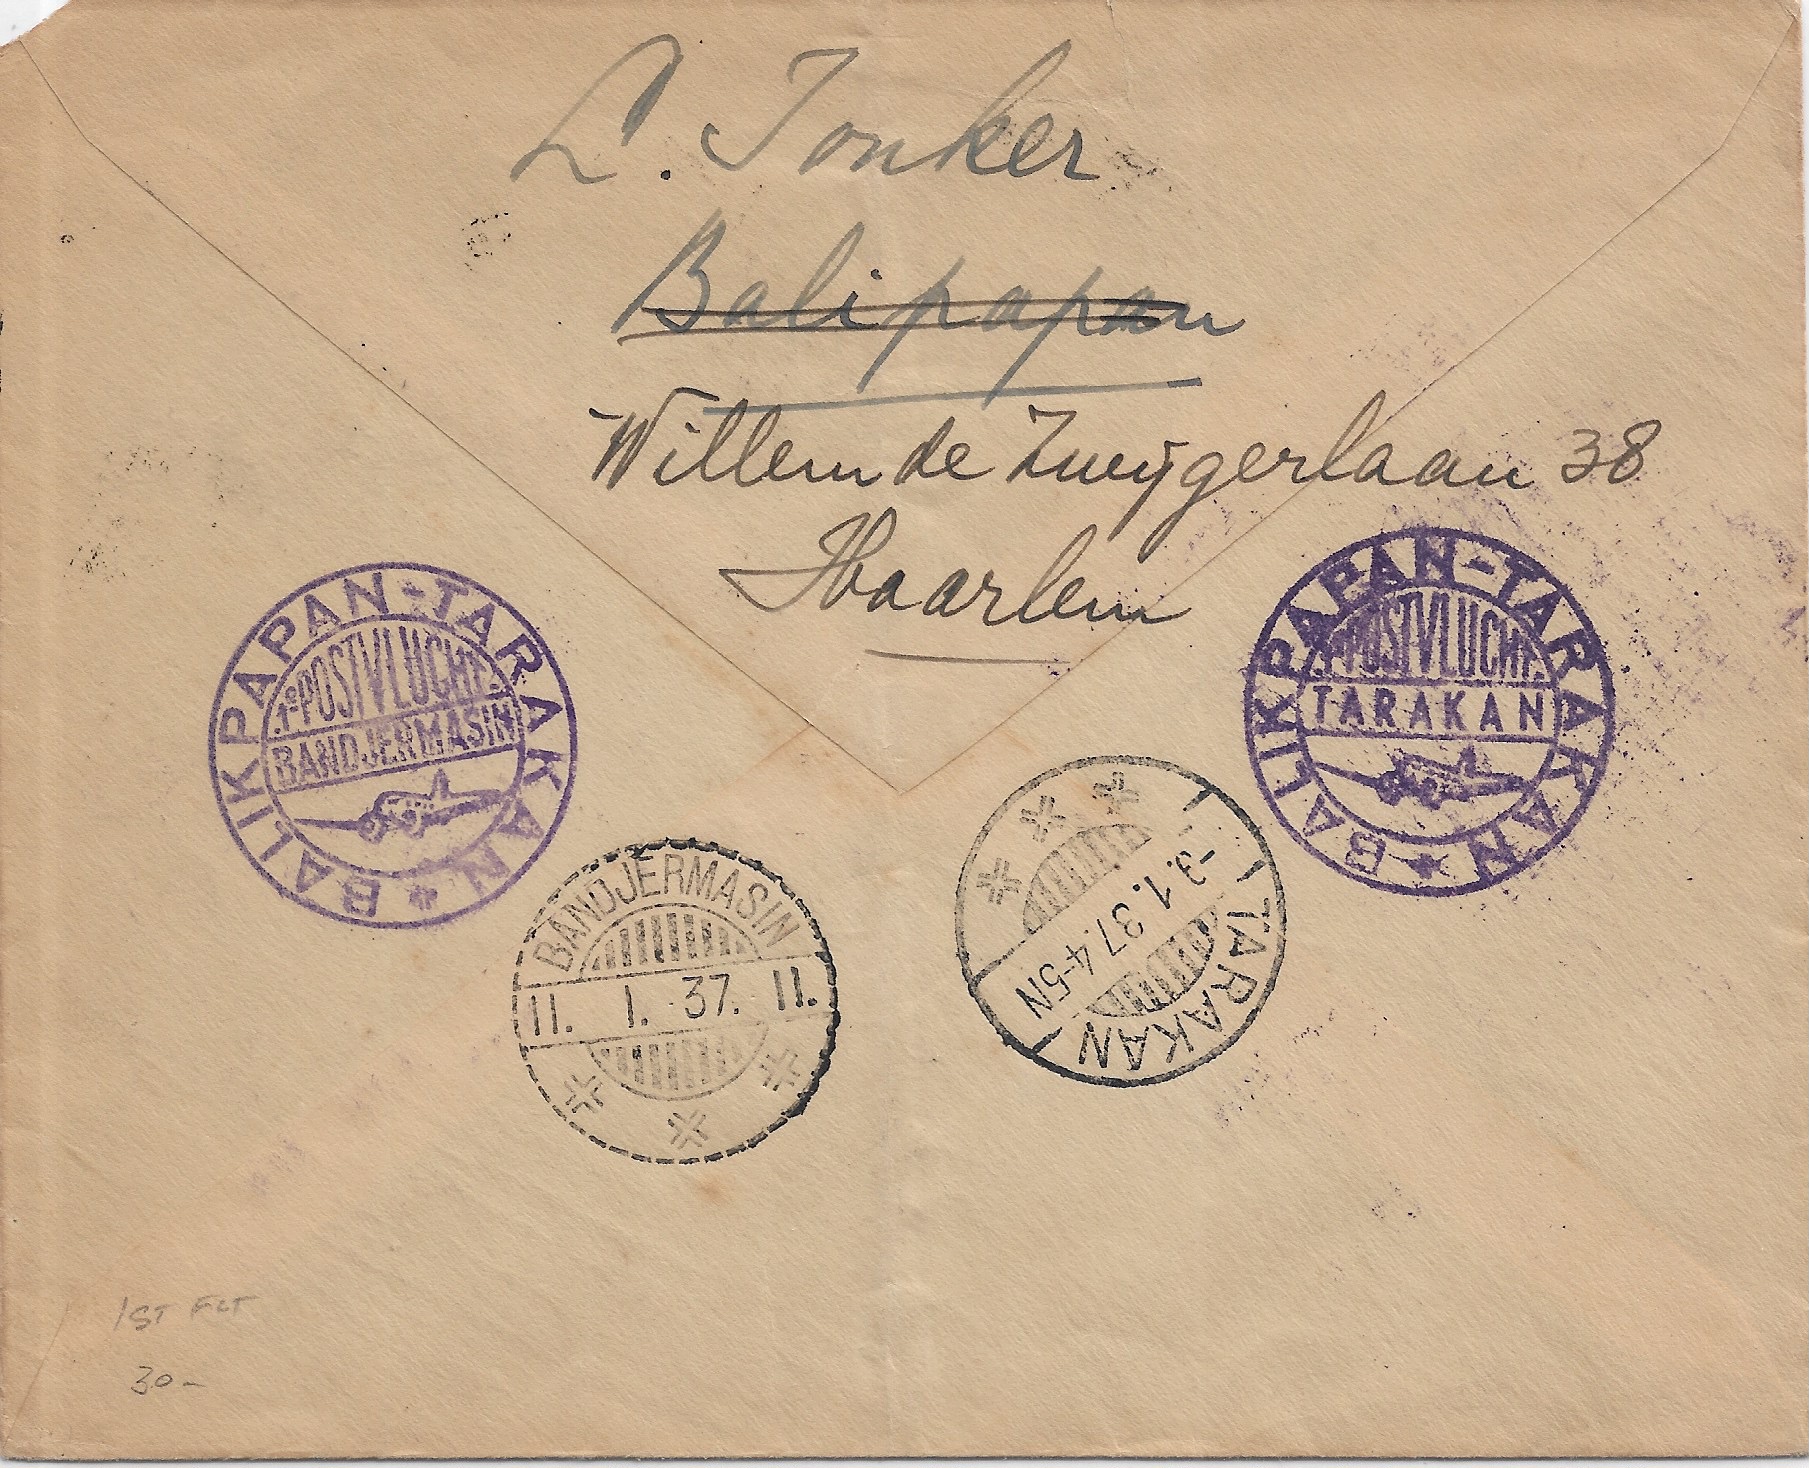 L. Jonker
Balipapan
Willem de Zweijgerlaan 38
Haarlem
BALIKPAPAN-TARAKAN
1e POSTVLUCHT.
BANDJERMASIN
BALIKPAPAN-TARAKAN
1e POSTVLUCHT.
TARAKAN
BANDJERMASIN
11. 1. 37. 11.
TARAKAN
-9.1.37.4-5N
1ST FLT
30-